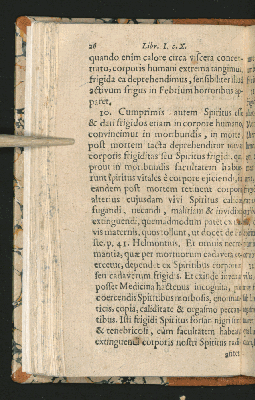 26 Libr. I. c. X.
quando enim calore circa viscera concen-
trato, corporis humani extrema tangimus
frigida ea deprehendimus, sensibiliter
activum frigus in Febrium horroribus ap-
paret.
10. Cumprimis autem Spiritus
& dari frigidos etiam in corpore humano
convincimur in moribundis, in
post mortem tacta deprehenditur
corporis frigiditas seu Spiritus frigidi,
prout in moribundis facultatem habue-
runt spiritus vitales è corpore ejiciendi,
eandem post mortem retinent
alterius cujusdam vivi Spiritus
fugandi, necandi, multum &
extinguendi, quemadmodum patet ex
vis maternis, quos tollunt, ut docet de
ste. p. 41. Helmontius. Et omnis necro-
mantia, quæ per mortuorum cadavera
ercetur, dependet ex Spiritibus corporum
seu cadaverum frigidis. Et exinde
posset Medicina hactenus incognita,
coercendis Spiritibus morbosis,
ticis, copia, caliditate & orgasmo peccan-
tibus. Isti frigidi Spiritus
& tenebricosi, cum facultatem
extinguendi corporis nostri Spiritus